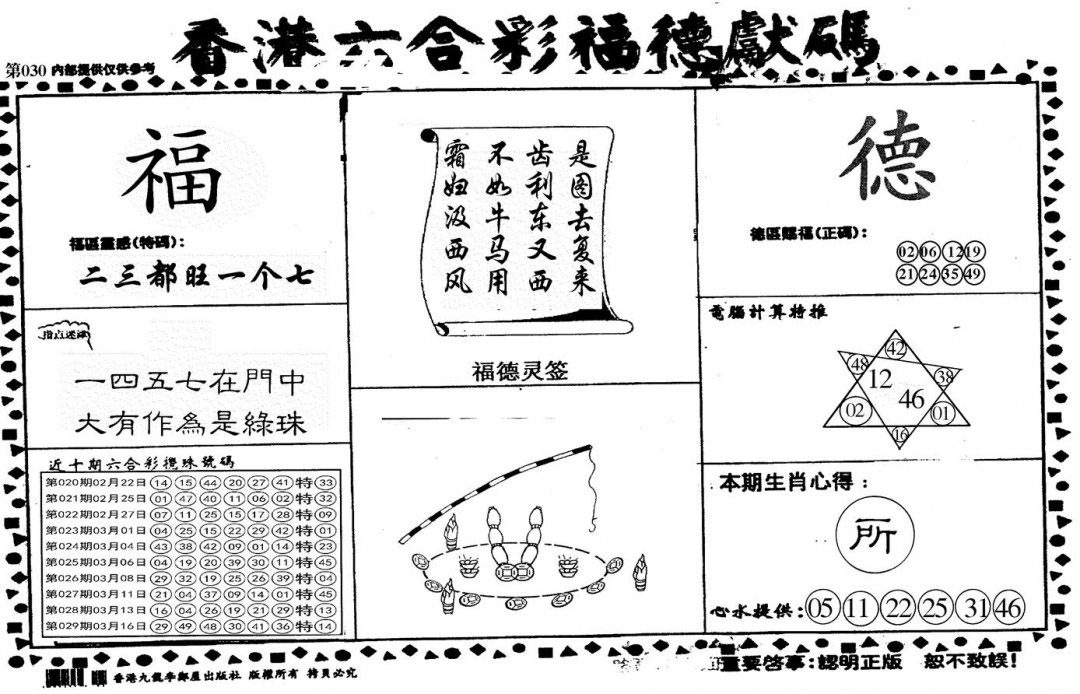 香港六合彩福德獻碼
第030 内部提供仅供参考
福
福區靈感(特碼):
二三都旺一个七
指点迷津
一四五七在門中
大有作為是綠珠
近十期六合彩攪珠號碼
第020期02月22日 14 15 44 20 27 41 特 33
第021期02月25日 01 47 40 11 06 02 特 32
第022期02月27日 07 11 25 15 17 28 特 09
第023期03月01日 04 25 15 22 29 42 特 01
第024期03月04日 43 38 42 09 01 14 特 23
第025期03月06日 04 19 20 39 30 11 特 45
第026期03月08日 29 32 19 25 26 39 特 04
第027期03月11日 21 04 37 09 14 01 特 45
第028期03月13日 16 04 26 19 21 29 特 13
第029期03月16日 29 49 48 30 41 36 特 14
是图去复来
齿利东又西
不如牛马用
霜妇汲西风
福德灵签
德
德區賜福(正碼):
02 06 12 19
21 24 35 49
電腦計算特推
42
48 12 38
46
02 01
16
本期生肖心得:
所
心水提供:05 11 22 25 31 46
香港九龍李鄭屋出版社 版權所有 拷貝必究
重要啓事:認明正版 恕不致誤!